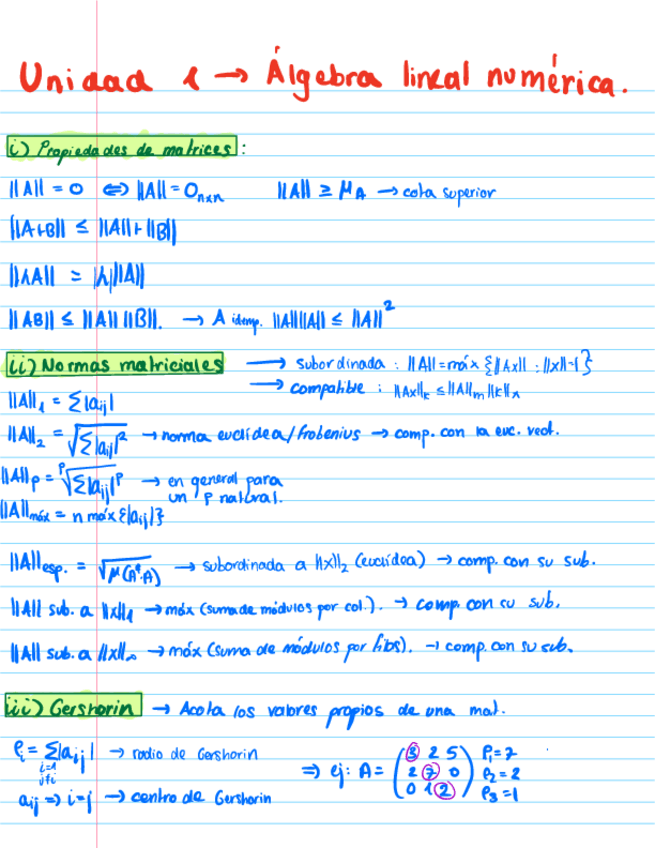 Unidad 1 → Álgebra lineal numérica.
i) Propiedades de matrices:
||A|| = 0 ⇔ ||A|| = 0nxn   ||A|| ≥ μA → cota superior
||A+B|| ≤ ||A||+||B||
||λA|| = |λ|||A||
||AB|| ≤ ||A|| ||B||. → A idemp. ||A||||A|| ≤ ||A||²
ii) Normas matriciales → subordinada : ||A||=máx {||Ax|| : ||x||=1}
→ compatible : ||Ax||k ≤ ||A||m ||x||k
||A||₁ = Σ|aij|
||A||₂ = √Σ|aij|² → norma euclídea/Frobenius → comp. con la euc. vect.
||A||p = ᵖ√Σ|aij|ᵖ → en general para
un p natural.
||A||máx = n máx{|aij|}
||A||esp. = √μ(A*·A) → subordinada a ||x||₂ (euclídea) → comp. con su sub.
||A|| sub. a ||x||₁ → máx (suma de módulos por col.). → comp. con su sub.
||A|| sub. a ||x||∞ → máx (suma de módulos por filas). → comp. con su sub.
iii) Gershorin → Acota los valores propios de una mat.
ρi = Σ|aij| → radio de Gershorin
i=1
j≠i
aij ⇒ i=j → centro de Gershorin
⇒ ej: A =
3 2 5 ρ₁=7
2 7 0 ρ₂=2
0 1 2 ρ₃=1